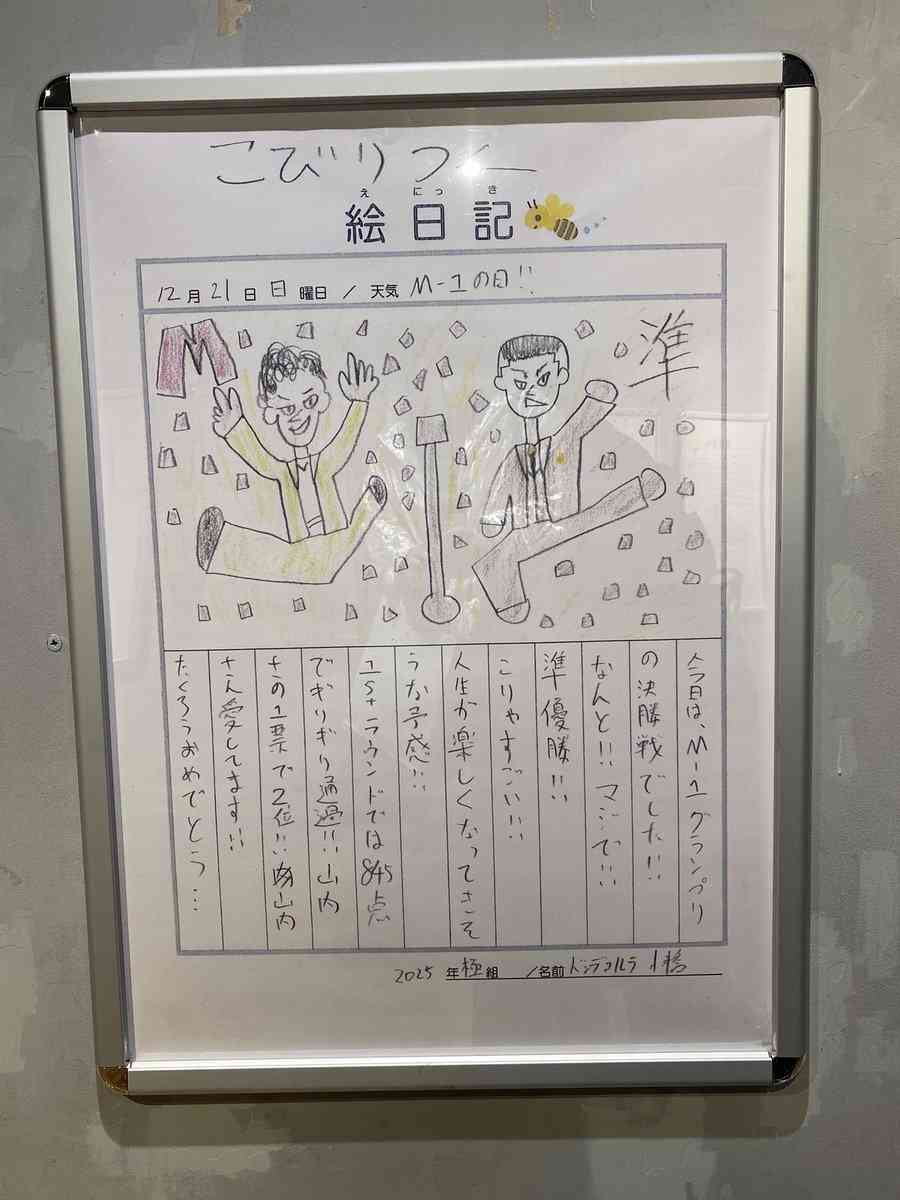 こびりつー
え にっ き
絵日記
12月21日 日曜日 / 天気 M-1の日!!
M
準
今日は、M-1グランプリ
の決勝戦でした!!
なんと!! マジで!!
準優勝!!
こりゃすごい!!
人生が楽しくなってきそ
うな予感!!
1stラウンドでは845点
でギリギリ通過!! 山内
さの1票で2位!! 山内
さん愛してます!!
たくろうおめでとう…
2025年極組 /名前 ドンデコルテ 小橋